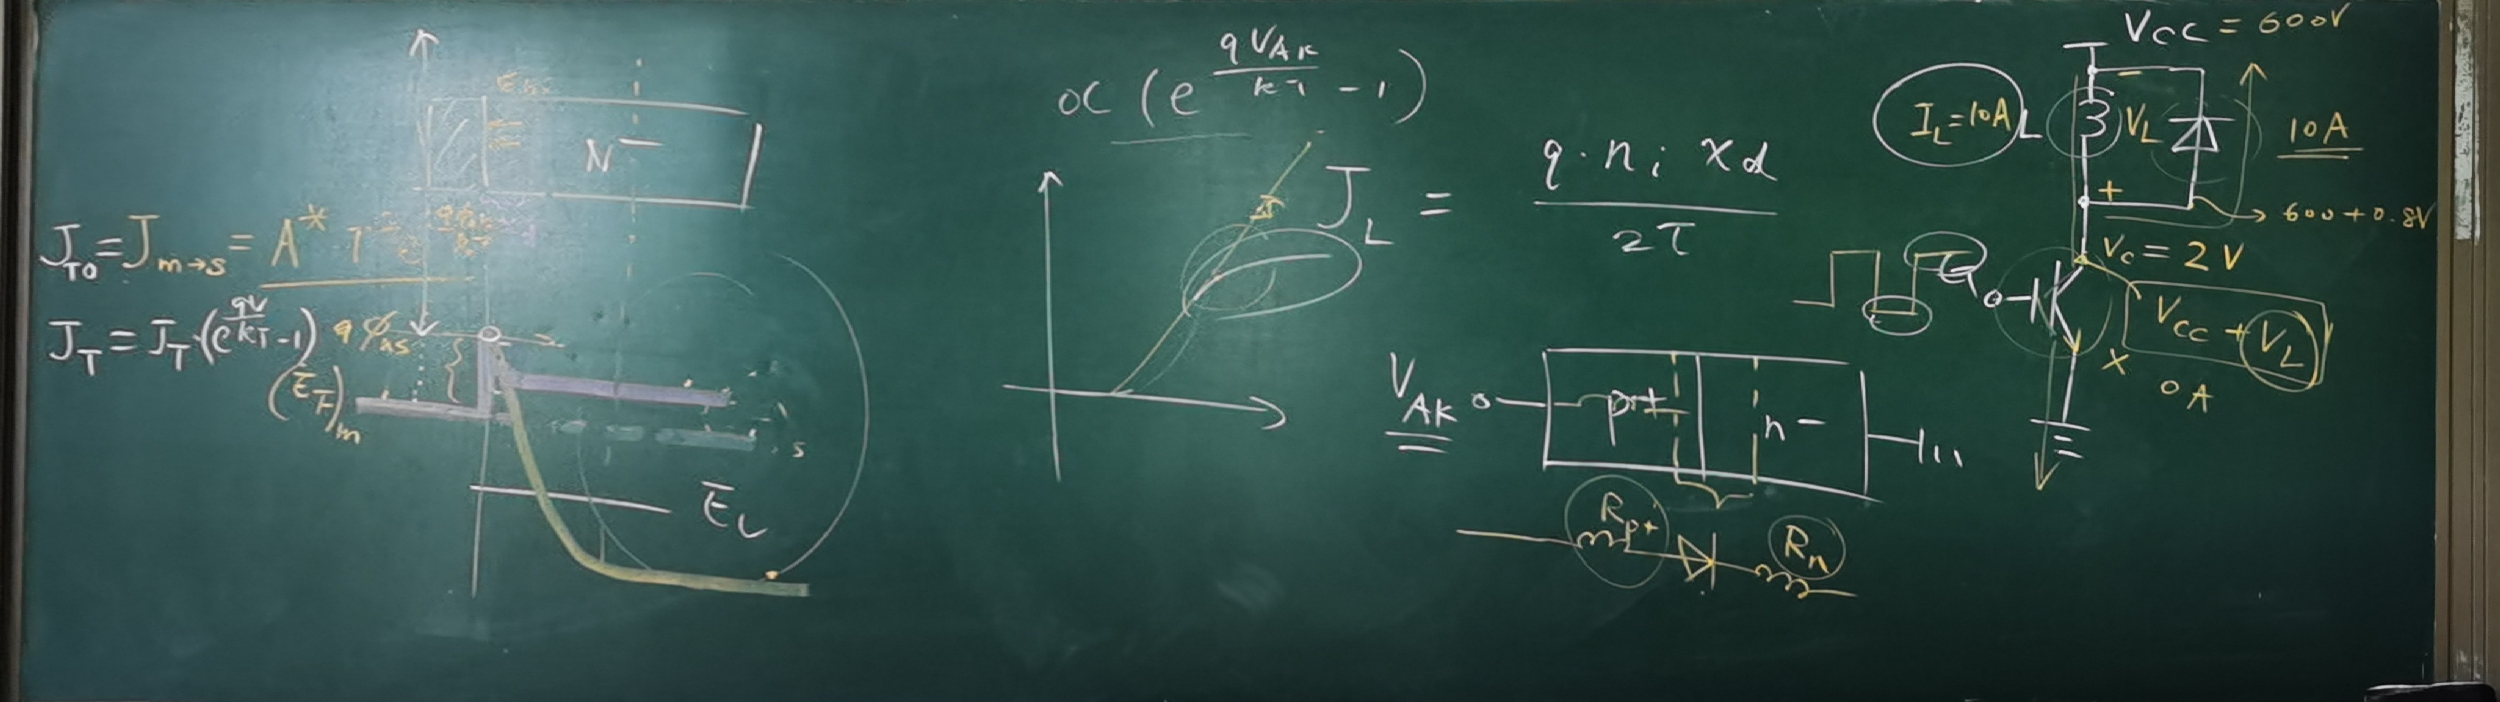 N⁻
J_T0 = J_m→s = A* T
J_T = J_T·(e^(qV/kT) - 1)
qφ_ns
(E_F)_m
s
E_i
∝ (e^(qV_AK/kT) - 1)
J_L = q·n_i x_d / 2τ
V_AK
p+
n-
R_p+
R_n
V_CC = 600V
I_L=10A
L
V_L
-
+
10A
600+0.8V
V_C = 2V
Q
V_CC + V_L
x
0A